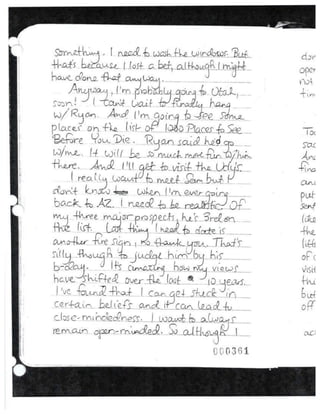 something. I need to wash the windows. But
that's because I lost a bet, although I might
have done that anyway.
Anyway, I'm probably going to Utah,
soon! I can't wait to finally hang
w/Ryan. And I'm going to see some
places on the list of 1000 Places to See
Before You Die. Ryan said he'd go
w/me. It will be so much more fun w/him
there. And I'll get to visit the
I really want to meet Sam but I
don't know when I'm ever going
back to AZ. I need to be realistic. Of
my three major prospects, he's 3rd on
that list. Last thing I need to date is
another fire sign, no thank you. That's
silly though to judge him by his
b-day. It's amazing how my views
have shifted over the last 10 years.
I've found that I can get stuck in
certain beliefs and it can lead to
close-mindedness. I want to always
remain open-minded. So although I
000361